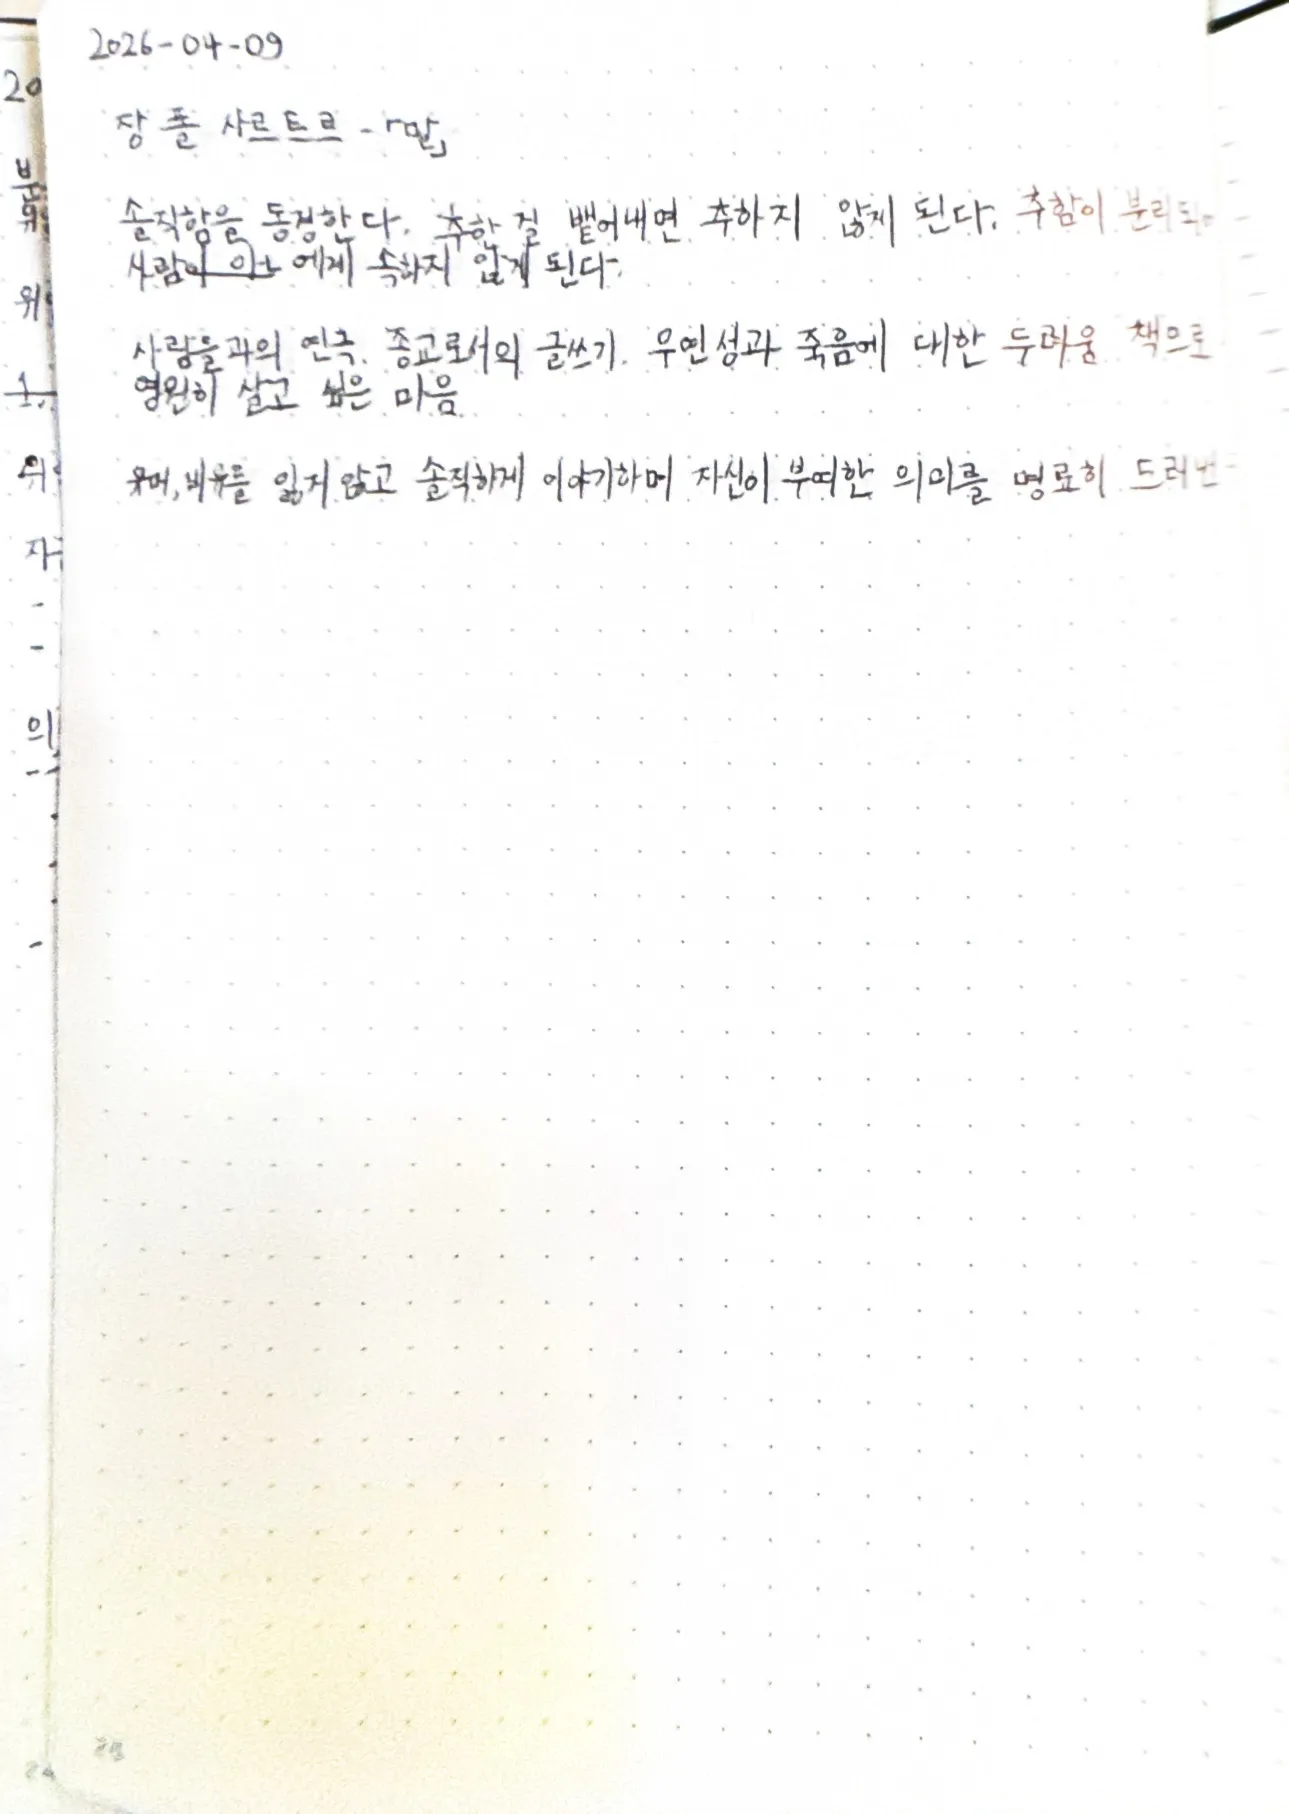 2026-04-09
장 폴 사르트르 - 「말」
솔직함을 동경한다. 추한 걸 뱉어내면 추하지 않게 된다. 추함이 분리되어
사람 에게 속하지 않게 된다.
사람들과의 연극. 종교로서의 글쓰기. 우연성과 죽음에 대한 두려움 책으로
영원히 살고 싶은 마음
유머, 비유를 잃지 않고 솔직하게 이야기하며 자신이 부여한 의미를 명료히